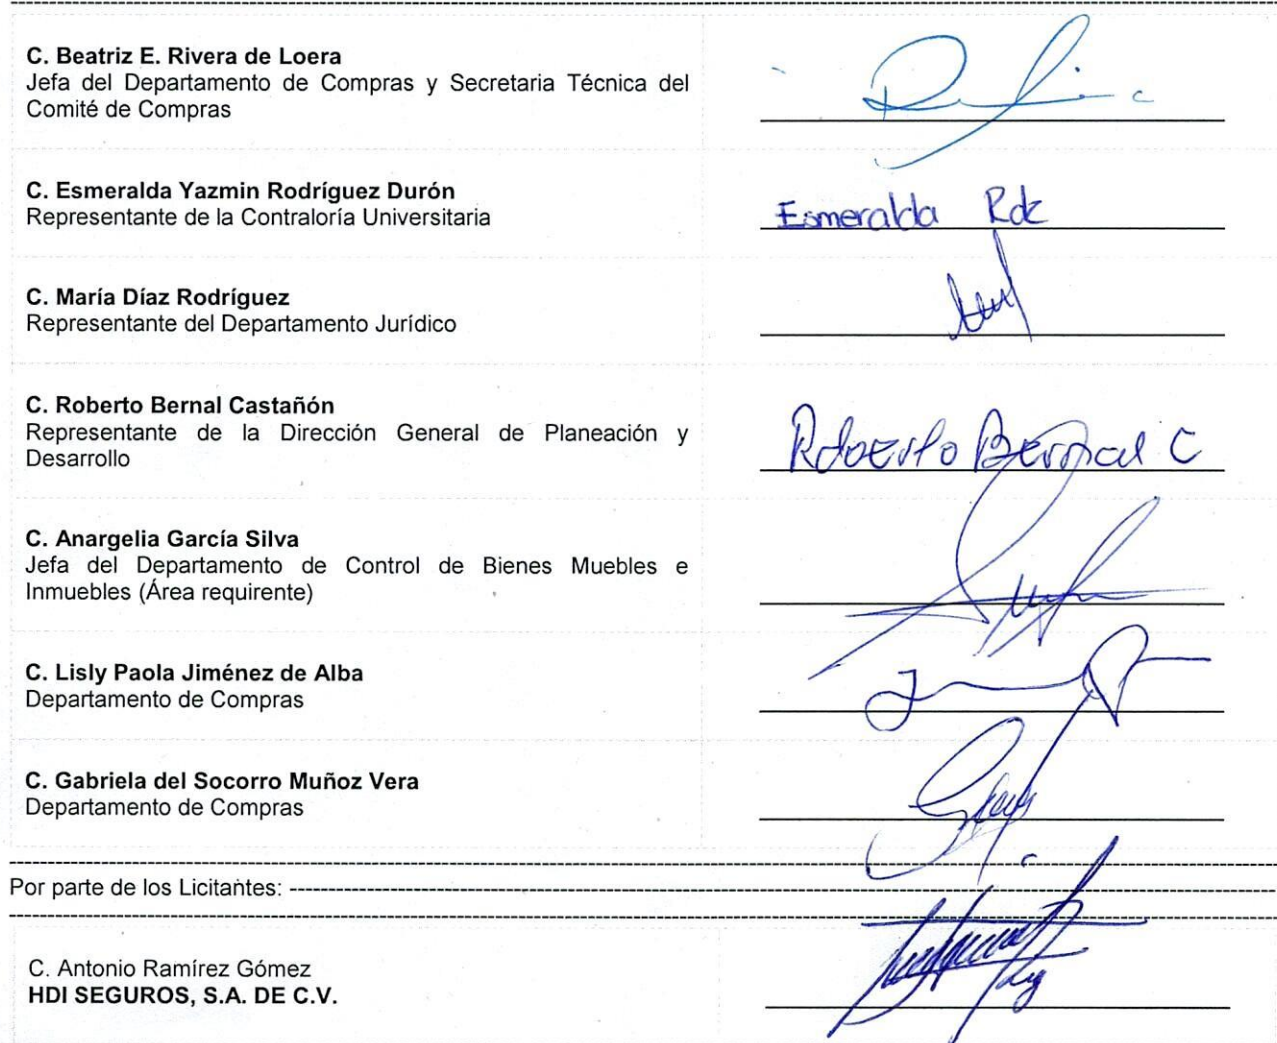 C. Beatriz E. Rivera de Loera
Jefa del Departamento de Compras y Secretaria Técnica del
Comité de Compras
C. Esmeralda Yazmin Rodríguez Durón
Representante de la Contraloría Universitaria
Esmeralda Rdz
C. María Díaz Rodríguez
Representante del Departamento Jurídico
C. Roberto Bernal Castañón
Representante de la Dirección General de Planeación y
Desarrollo
Roberto Bernal C
C. Anargelia García Silva
Jefa del Departamento de Control de Bienes Muebles e
Inmuebles (Área requirente)
C. Lisly Paola Jiménez de Alba
Departamento de Compras
C. Gabriela del Socorro Muñoz Vera
Departamento de Compras
Por parte de los Licitantes:
C. Antonio Ramírez Gómez
HDI SEGUROS, S.A. DE C.V.